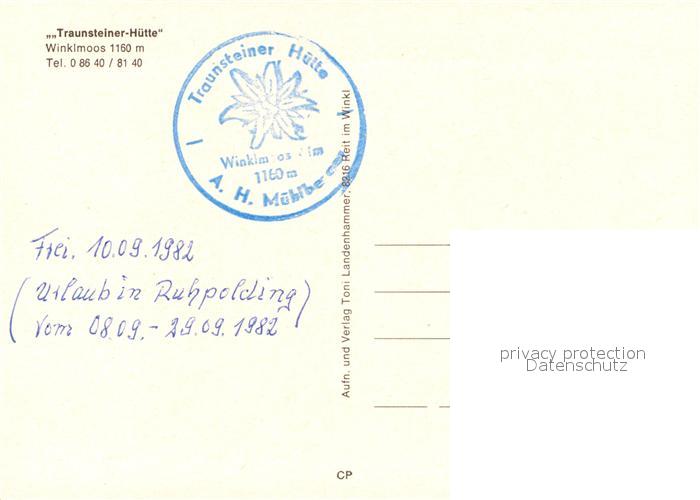 „„Traunsteiner-Hütte“
Winklmoos 1160 m
Tel. 0 86 40 / 81 40
Traunsteiner Hütte
Winklm os
1160 m
A. H. Mühlberger
Aufn. und Verlag Toni Landenhammer, 8216 Reit im Winkl
Frei. 10.09.1982
(Urlaub in Ruhpolding)
vom 08.09. - 29.09.1982
privacy protection
Datenschutz
CP